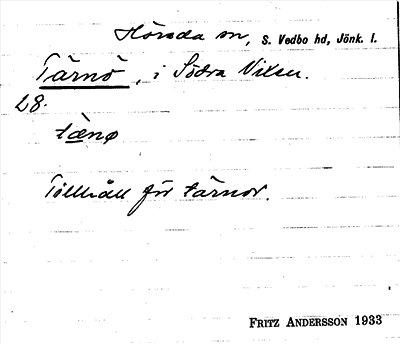 Hörsda sn, S. Vedbo hd, Jönk. l.
Tärnö, i Södra Vixen.
28.
tæ̀nø
Tillhåll för tärnor.
FRITZ ANDERSSON 1933